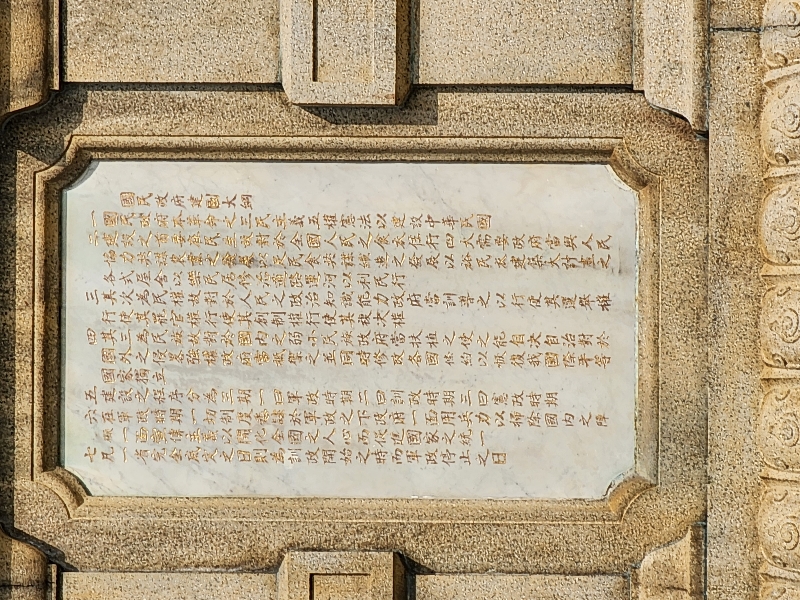 國民政府建國大綱
一國民政府本革命之三民主義五權憲法以建設中華民國
二建設之首要在民生故對於全國人民之食衣住行四大需要政府當與人民
協力共謀農業之發展以足民食共謀織造之發展以裕民衣建築大計畫之
各式屋舍以樂民居修治道路運河以利民行
三其次為民權故對於人民之政治知識能力政府當訓導之以行使其選舉權
行使其罷官權行使其創制權行使其複決權
四其三為民族故對於國內之弱小民族政府當扶植之使之能自決自治對於
國外之侵略強權政府當抵禦之並同時修改各國條約以恢復我國際平等
國家獨立
五建設之程序分為三期一曰軍政時期二曰訓政時期三曰憲政時期
六在軍政時期一切制度悉隸於軍政之下政府一面用兵力以掃除國內之障
礙一面宣傳主義以開化全國之人心而促進國家之統一
七凡一省完全底定之日則為訓政開始之時而軍政停止之日